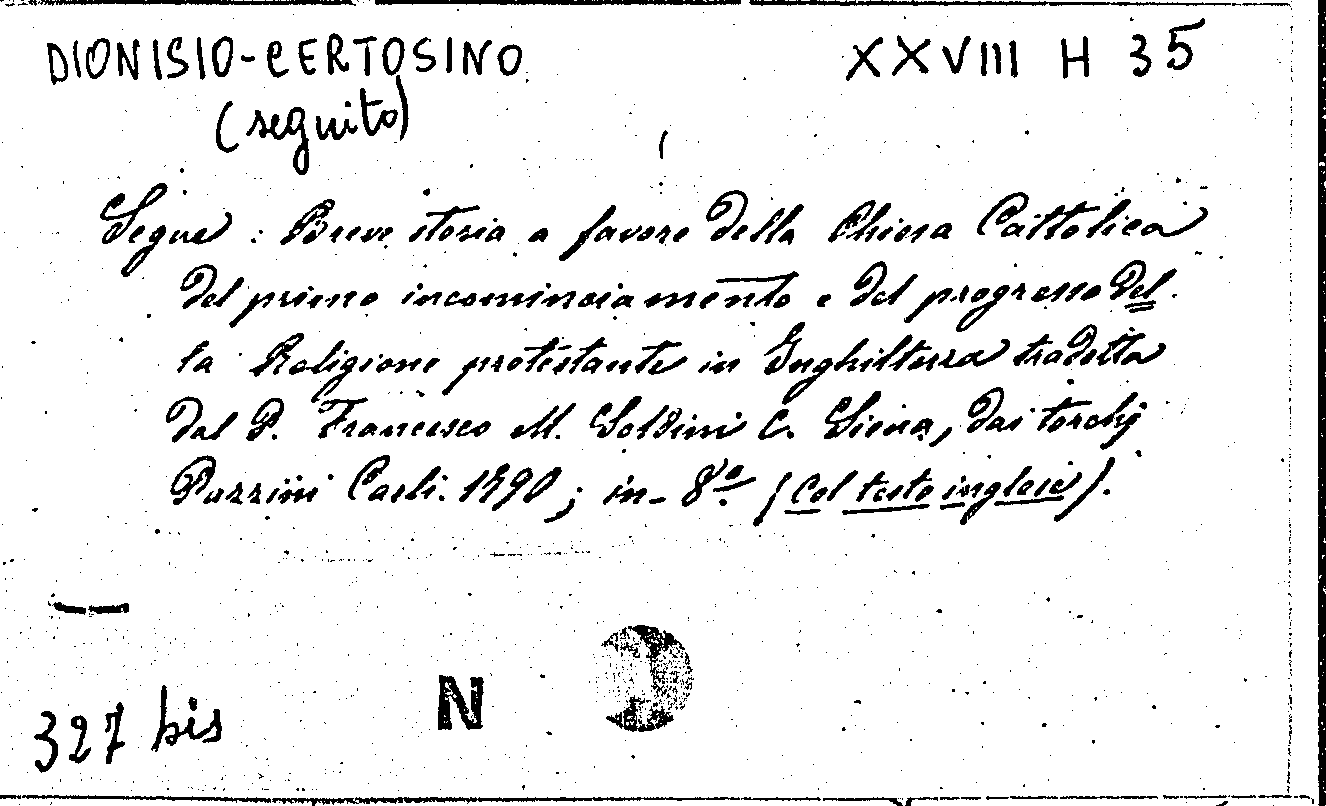 DIONISIO-CERTOSINO XXVIII H 35
(seguito)
Segue : Breve storia a favore della Chiesa Cattolica
del primo incominciamento e del progresso del
la Religione protestante in Inghilterra tradotta
dal P. Francesco M. Soldini C. Siena, dai torchj
Pazzini Carli. 1790 ; in-8º (Col testo inglese).
327 bis N